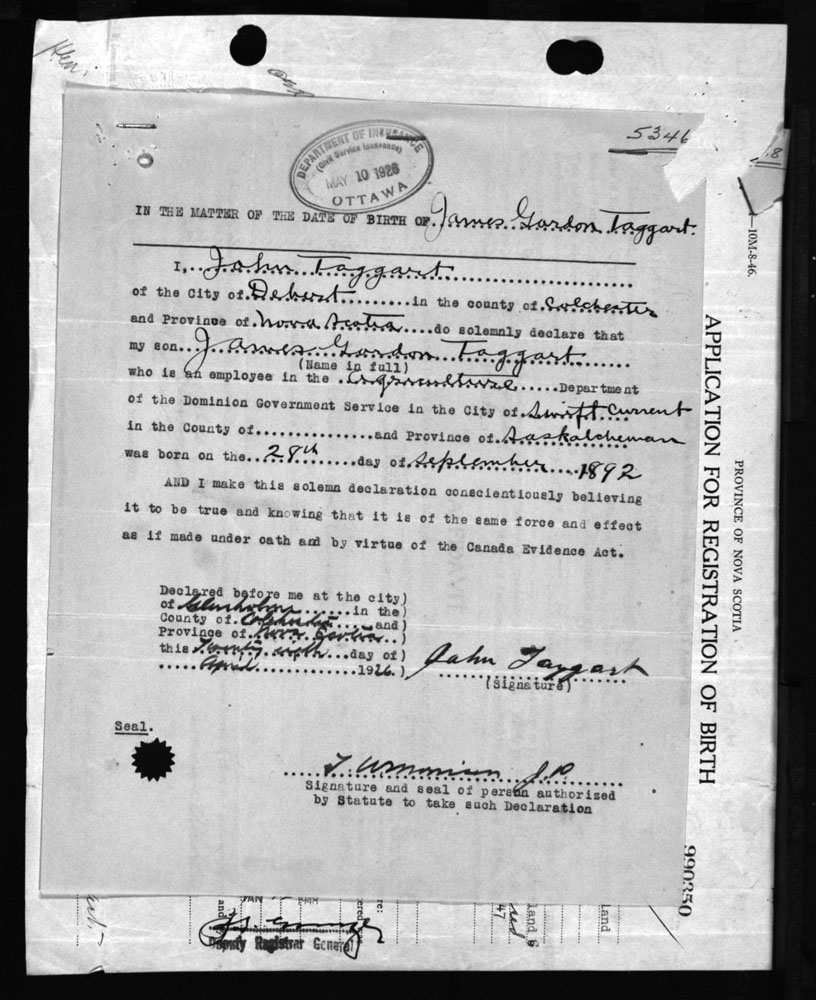 5346
DEPARTMENT OF INSURANCE
(Civil Service Insurance)
MAY 10 1926
OTTAWA
IN THE MATTER OF THE DATE OF BIRTH OF James Gordon Taggart.
I, John Taggart
of the City of Debert in the county of Colchester
and Province of Nova Scotia do solemnly declare that
my son James Gordon Taggart
(Name in full)
who is an employee in the agriculture Department
of the Dominion Government Service in the City of Swift Current
in the County of and Province of Saskatchewan
was born on the 28th day of September 1892
AND I make this solemn declaration conscientiously believing
it to be true and knowing that it is of the same force and effect
as if made under oath and by virtue of the Canada Evidence Act.
Declared before me at the city)
of Glenholme in the)
County of Colchester and)
Province of Nova Scotia )
this Twenty sixth day of)
April 1926.)
John Taggart
(Signature)
Seal.
J.P.
Signature and seal of person authorized
by Statute to take such Declaration
10M-8-46.
PROVINCE OF NOVA SCOTIA
APPLICATION FOR REGISTRATION OF BIRTH
990350
JAN
Deputy Registrar General
and
land
47
land